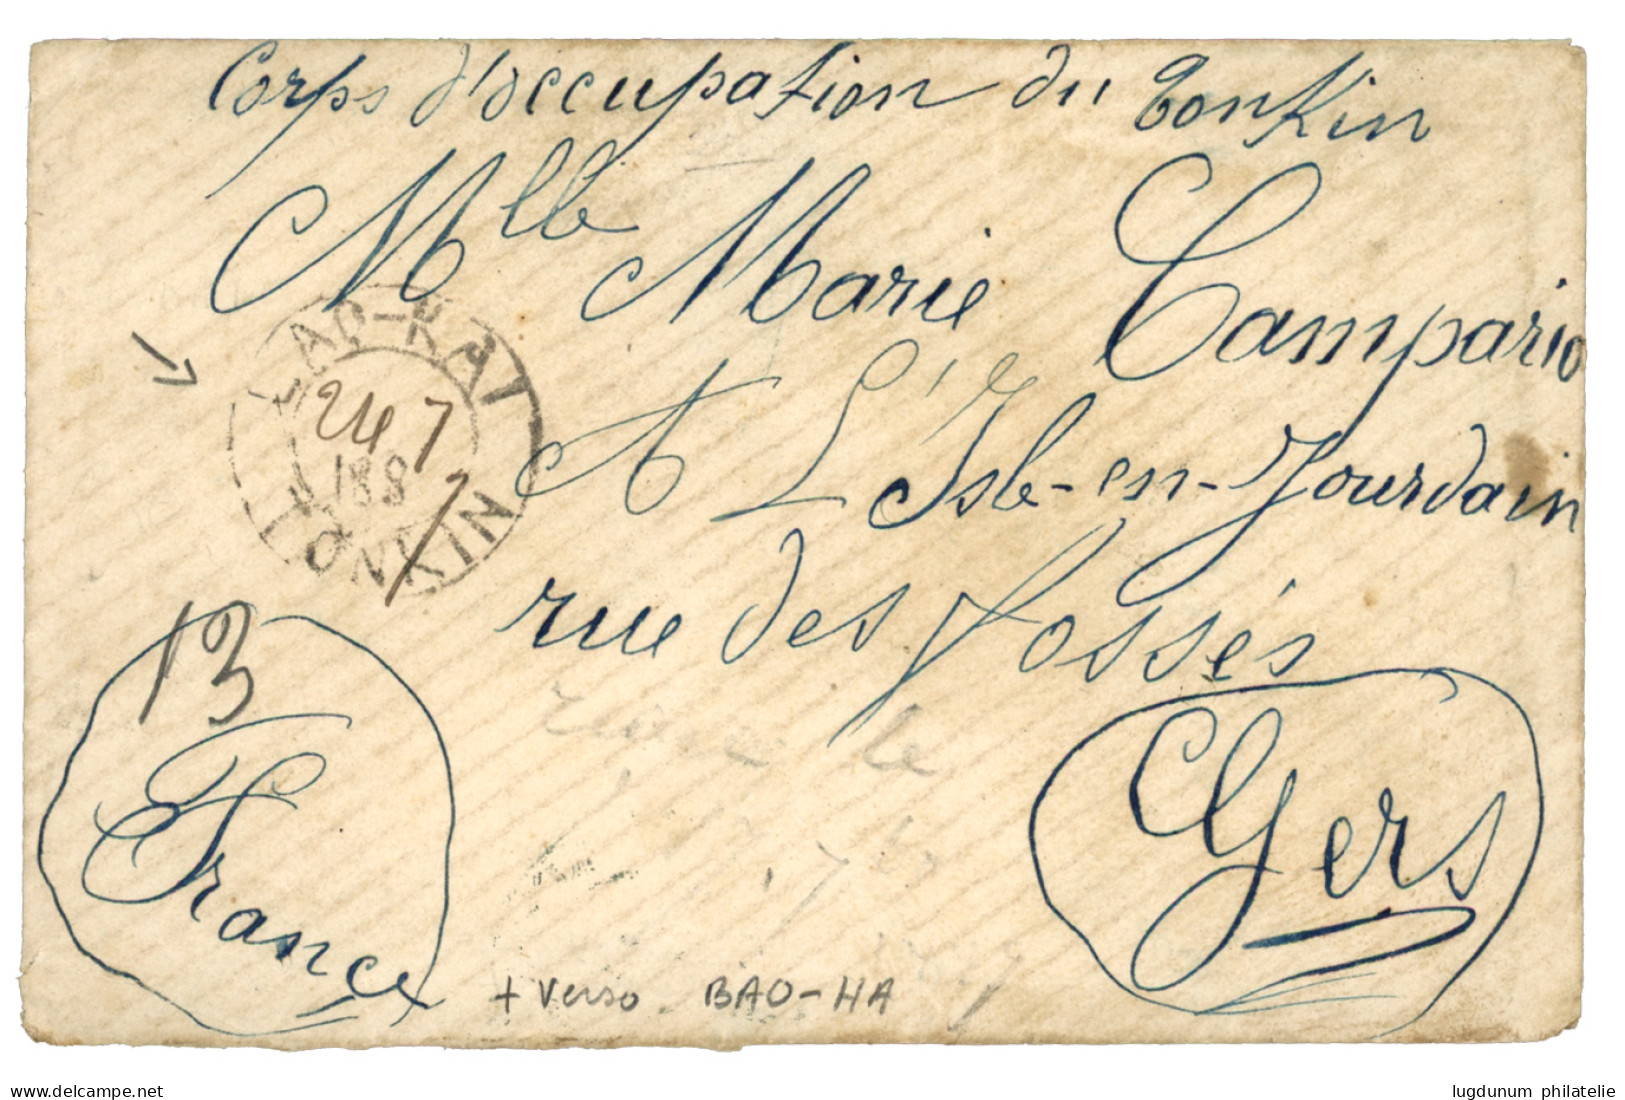 Corps d'occupation du Tonkin
Mlle Marie Campario
LAO-KAI
24 7
188
7
TONKIN
A L'Isle-en-Jourdain
rue des Fossés
13
France
le
Gers
+ verso BAO-HA
delcampe.net
lugdunum philatelie